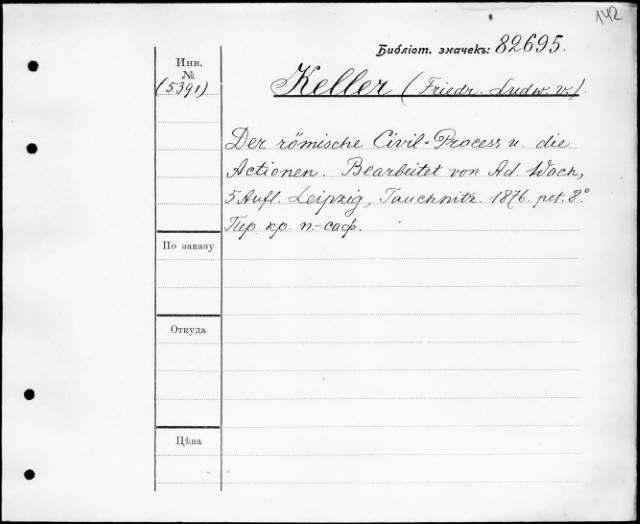 142
Библіот. значекъ: 82695.
Инв.
№
(5391)
Keller (Friedr. Ludw. v.).
Der römische Civil-Process u. die
Actionen. Bearbeitet von Ad. Wach,
5 Aufl. Leipzig, Tauchnitz. 1876. pet. 8°
Пер. кр. п.-саф.
По заказу
Откуда
Цѣна